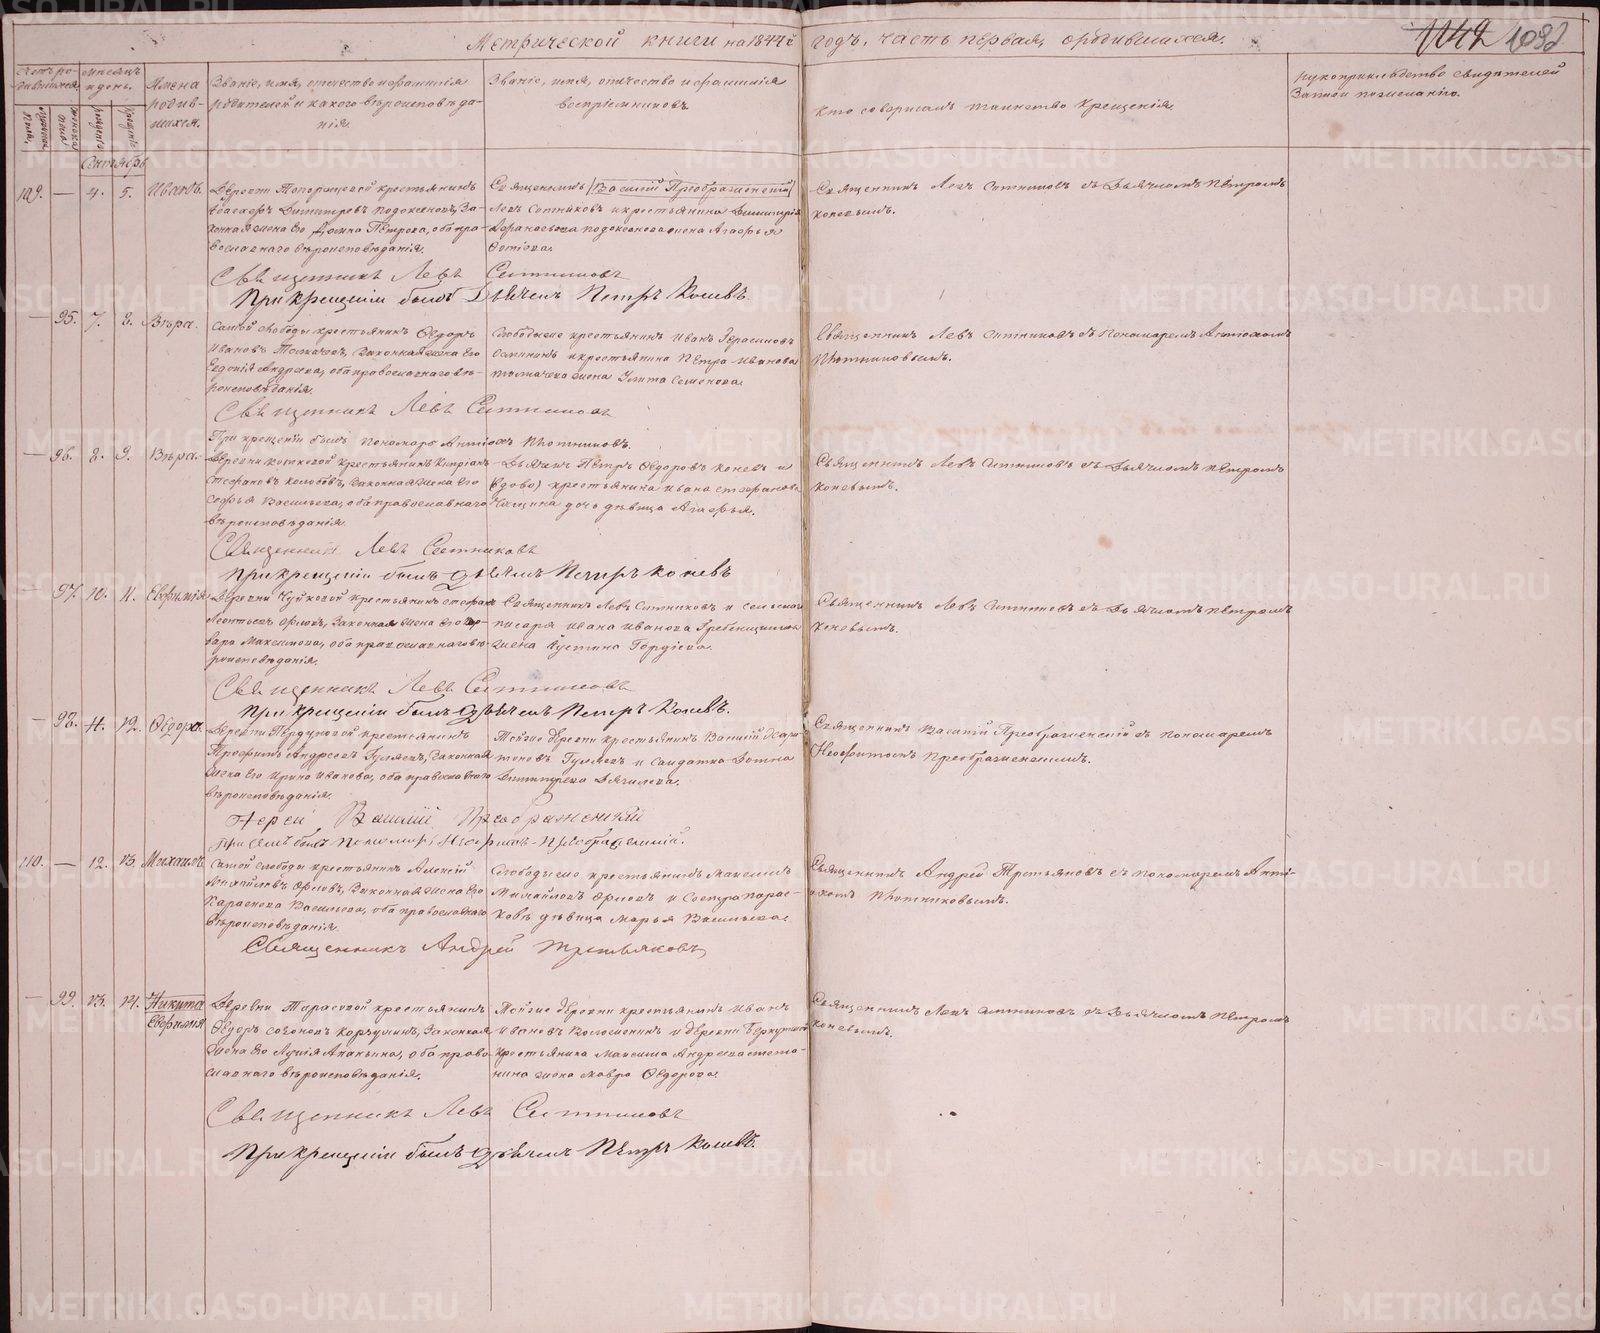 Метрической книги на 1844й годъ, часть первая, о родившихся.
1142 1092
Счетъ родившихся.
Мѣсяцъ и день.
Имена родившихся.
Званіе, имя, отчество и фамилія
родителей и какого вѣроисповѣда-
нія.
Званіе, имя, отчество и фамилія
воспріемниковъ.
Кто совершалъ таинство крещенія.
Рукоприкладство свидѣтелей
записи по желанію.
Мужеска пола.
Женска пола.
рожденія
крещенія
Сентябрь
109. — 4. 5. Иванъ.
Деревни Топорищевой крестьянинъ
Димитревъ Подоксеновъ, за-
конная жена его Домна Петрова, оба пра-
вославнаго вѣроисповѣданія.
Священникъ (Василій Преображенскій)
Левъ Ситниковъ и крестьянина Димитрія
Афанасьева Подоксенова жена Агафья
Священникъ Левъ Ситниковъ съ Дьячкомъ Петромъ
Коневымъ.
Священникъ Левъ Ситниковъ
При крещеніи былъ Дьячекъ Петръ Коневъ.
— 95. 7. 8. Вѣра.
Самой Слободы крестьянинъ Ѳедоръ
Ивановъ Толмачевъ, законная жена его
Евдокія Андреева, оба православнаго вѣ-
роисповѣданія.
Слободы сей крестьянинъ Иванъ Герасимовъ
и крестьянина Петра Иванова
Толмачева жена Улита Семенова.
Священникъ Левъ Ситниковъ съ Пономаремъ Антіохомъ
Плотниковымъ.
Священникъ Левъ Ситниковъ
При крещеніи былъ Пономарь Антіохъ Плотниковъ.
— 96. 8. 9. Вѣра.
Деревни крестьянинъ Кипріанъ
Стефановъ законная жена его
Софья Васильева, оба православнаго
вѣроисповѣданія.
Дьячекъ Петръ Ѳедоровъ Коневъ и
крестьянина Ивана Стефанова
дочь дѣвица Агафья.
Священникъ Левъ Ситниковъ съ Дьячкомъ Петромъ
Коневымъ.
Священникъ Левъ Ситниковъ
При крещеніи былъ Дьячекъ Петръ Коневъ
97. 10. 11. Евфимія
Деревни Чуйковой крестьянинъ Стефанъ
Леонтьевъ Орловъ, законная жена его Вар-
вара Максимова, оба православнаго вѣ-
роисповѣданія.
Священникъ Левъ Ситниковъ и сельскаго
писаря Ивана Иванова Гребенщикова
жена Устина Гордѣева.
Священникъ Левъ Ситниковъ съ Дьячкомъ Петромъ
Коневымъ.
Священникъ Левъ Ситниковъ
При крещеніи былъ Дьячекъ Петръ Коневъ.
— 98. 11. 12. Ѳедора.
Деревни крестьянинъ
Трофимъ Андреевъ Гуляевъ, законная
жена его Ирина Иванова, оба православнаго
вѣроисповѣданія.
Той же деревни крестьянинъ Василій
Гуляевъ и солдатка Домна
Димитріева
Священникъ Василій Преображенскій съ Пономаремъ
Неофитомъ Преображенскимъ.
Іерей Василій Преображенскій
При семъ былъ Пономарь Неофитъ Преображенскій.
110. — 12. 13. Михаилъ
Самой Слободы крестьянинъ Алексій
Михайловъ Орловъ, законная жена его
Парасковья Васильева, оба православнаго
вѣроисповѣданія.
Слободы сей крестьянинъ Максимъ
Михайловъ Орловъ и сестра Парас-
ковьи дѣвица Марья Васильева.
Священникъ Андрей Третьяковъ съ Пономаремъ Анті-
охомъ Плотниковымъ.
Священникъ Андрей Третьяковъ
— 99. 13. 14. Никита
Евфимія
Деревни Тарасовой крестьянинъ
Ѳедоръ законная
жена его Лукія Ананьина, оба право-
славнаго вѣроисповѣданія.
Той же деревни крестьянинъ Иванъ
Ивановъ и деревни
крестьянина Максима Андреева
жена Мавра Ѳедорова.
Священникъ Левъ Ситниковъ съ Дьячкомъ Петромъ
Коневымъ.
Священникъ Левъ Ситниковъ
При крещеніи былъ Дьячекъ Петръ Коневъ.
METRIKI.GASO-URAL.RU